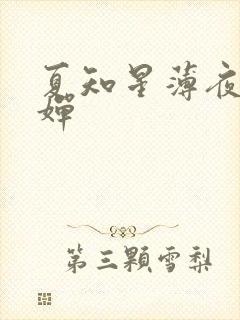 夏知星薄夜
婵
第三颗雪梨